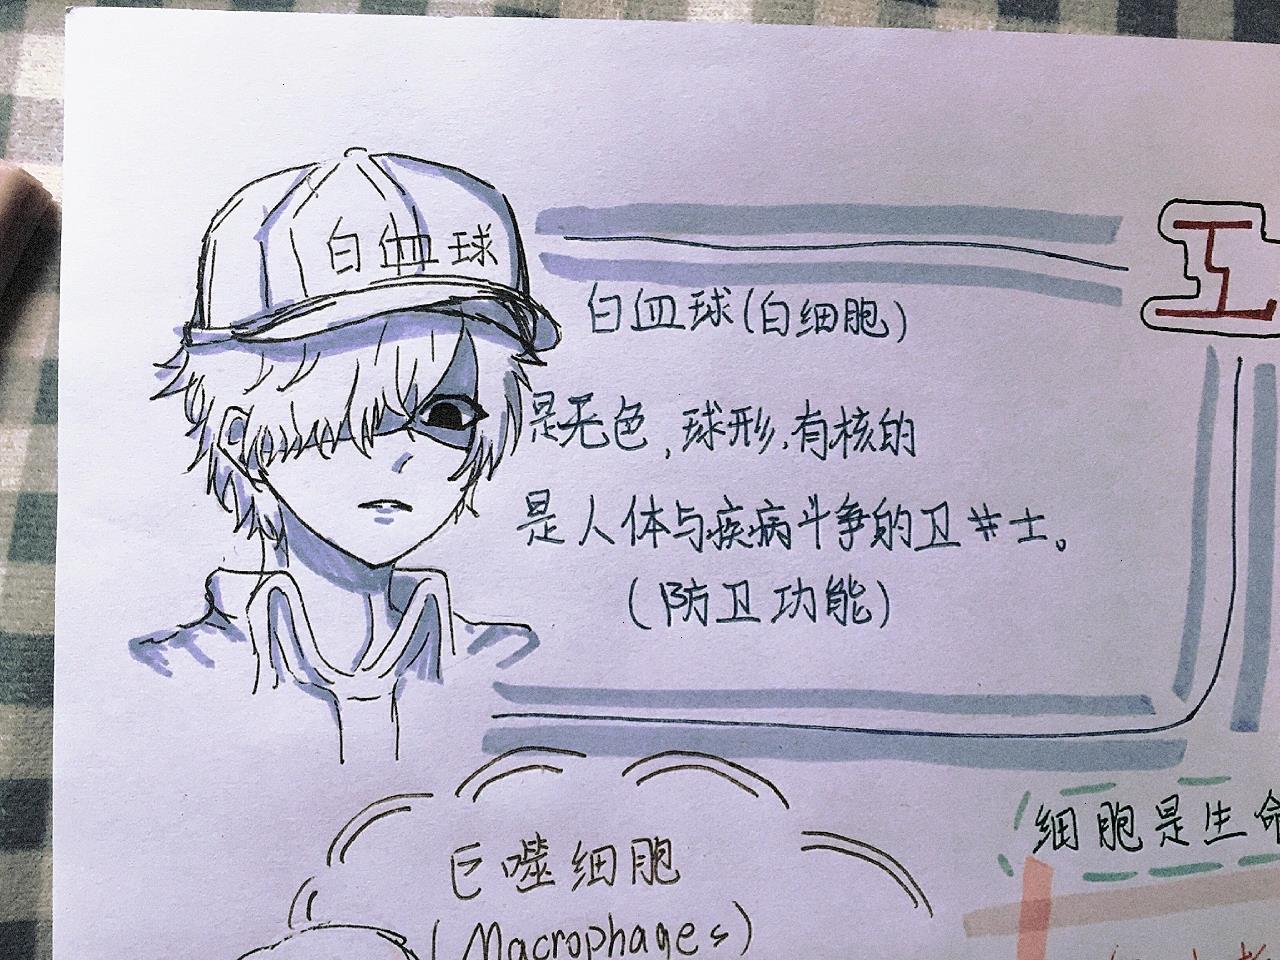 白血球
工
白血球(白细胞)
是无色,球形,有核的
是人体与疾病斗争的卫士。
(防卫功能)
细胞是生命
巨噬细胞
(Macrophages)